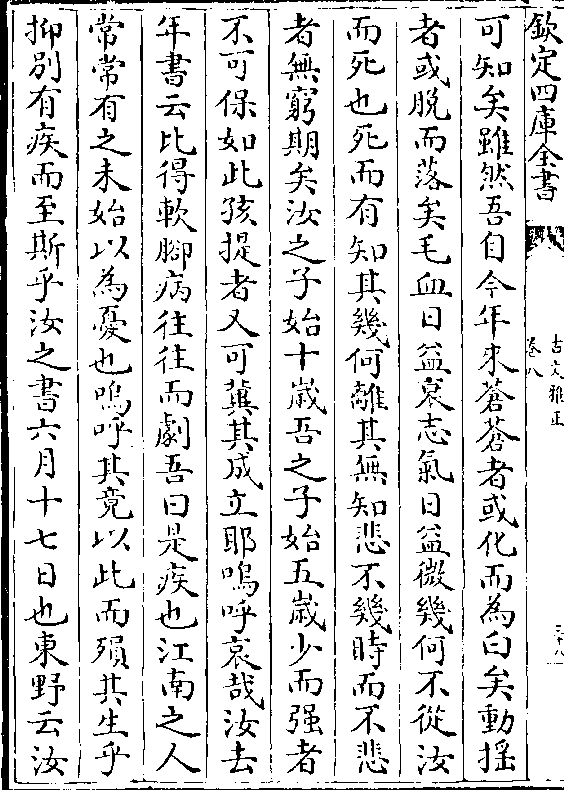 欽定四庫全書
古文雅正
卷八
三十八
可知矣雖然吾自今年來蒼蒼者或化而為白矣動搖
者或脱而落矣毛血日益衰志氣日益微幾何不從汝
而死也死而有知其幾何離其無知悲不幾時而不悲
者無窮期矣汝之子始十歲吾之子始五歲少而强者
不可保如此孩提者又可冀其成立耶嗚呼哀哉汝去
年書云比得軟腳病往往而劇吾曰是疾也江南之人
常常有之未始以為憂也嗚呼其竟以此而殞其生乎
抑别有疾而至斯乎汝之書六月十七日也東野云汝